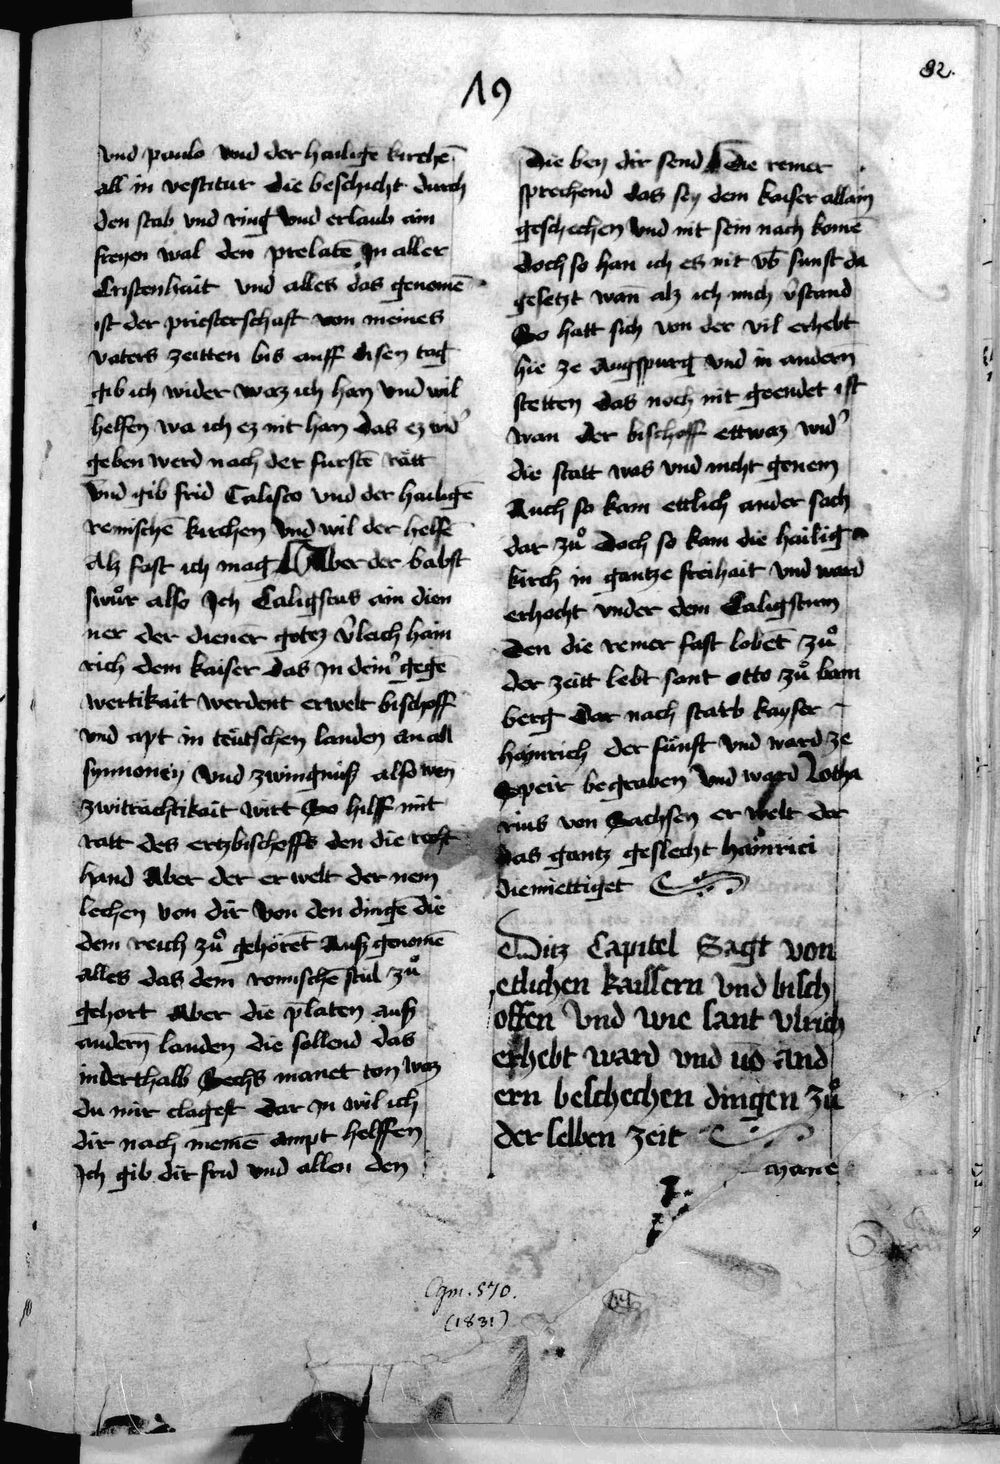 82.
19
vnd paulo vnd der hailige kirchē
all in vestitur die beschicht durch
den stab vnd ring vnd erlaub ain
freyen wal den prelatē In aller
Cristenhait vnd alles das genomē
ist der priesterschaft von meines
vaters zeitten bis auff disen tag
gib ich wider waz ich han vnd wil
helfen wa ich ez nit han das ez wid'
geben werd nach der furstē rätt
vnd gib frid Calisto vnd der hailigē
remischē kirchen vnd wil der helfē
Alz fast ich mag Aber der babst
swůr also Ich Caligstus ain dien
ner der diener gotez v̓leich hain
rich dem kaiser das in dein' gegē
wertikait werdent erwelt bischoff
vnd apt in teütschen landen an all
symoney vnd zwingnuß also wen
zwiträchtikait wirt So hilff mit
ratt des ertzbischoffs den die recht
hand Aber der erwelt der nem
lechen von dir von den dingē die
dem reich zů gehörēt Auß genomē
alles das dem romischē stůl zů
gehort Aber die p̄laten auß
andern landen die sollend das
inderthalb Sechs manet ton waz
du mir clagest dar in wil ich
dir nach meinē ampt helffen
Ich gib dir frid vnd allen den
Die bey dir send Die remer
sprechend das sey dem kaiser allain
geschechen vnd nit sein nach komē
doch so han ich es nit vb̄ sunst da
gesetzt wan alz ich mich v̓stand
So hatt sich von der vil erhebt
hie ze Augspurg vnd in andern
stetten das noch nit geendet ist
wan der bischoff ettwaz wid'
die statt was vnd nicht genem
Auch so kam ettlich ander sach
dar zů Doch so kam die hailig
kirch in gantze freihait vnd ward
erhocht vnder dem Caligstum
Den die remer fast lobēt zů
der zeitt lebt sant otto zů bam
berg Dar nach starb kayser
hainrich der fünft vnd ward ze
Speir begraben vnd ward Lotha
rius von Sachsen er welt der
das gantz geslecht hainrici
diemettiget
Ditz Capitel Sagt von
etlichen kaissern vnd bisch
offen vnd wie sant vlrich
erhebt ward vnd vō and
ern beschechen dingen zů
der selben zeit
Cgm. 570.
(1831)